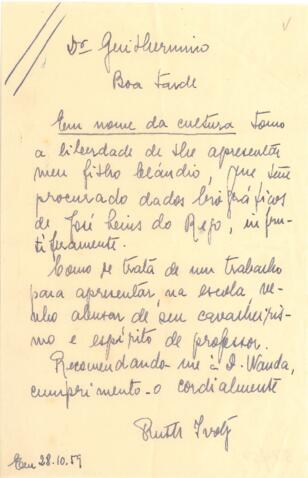 Dr Guilhermino
Boa tarde
Em nome da cultura tomo
a liberdade de lhe apresentar
meu filho Cláudio, que tem
procurado dados biográficos
de José Leins do Rego, infru-
tiferamente.
Como se trata de um trabalho
para apresentar na escola, ve-
nho abusar de seu cavalheiris-
mo e espírito de professor.
Recomendando-me à D. Wanda,
cumprimento-o cordialmente
Ruth
Em 28.10.59